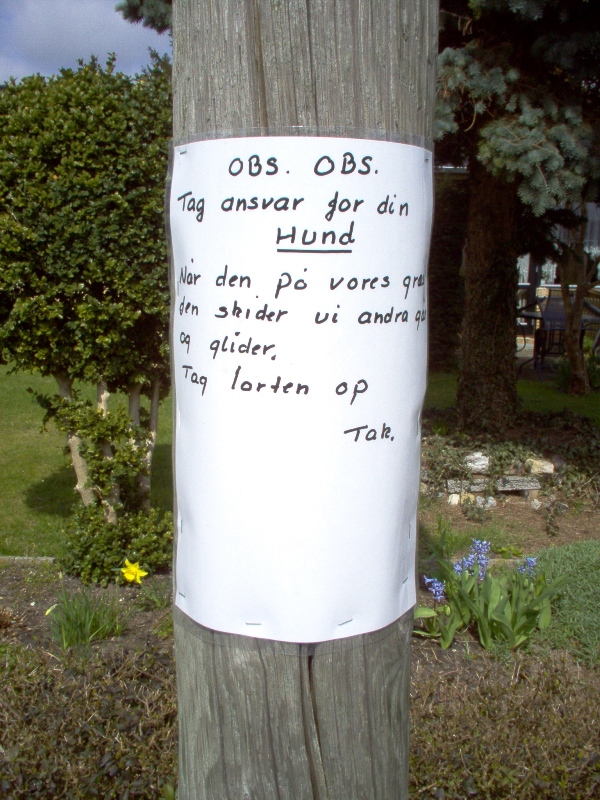 OBS. OBS.
Tag ansvar for din
Hund
Når den på vores
den skider vi andra
og glider.
Tag lorten op
Tak.